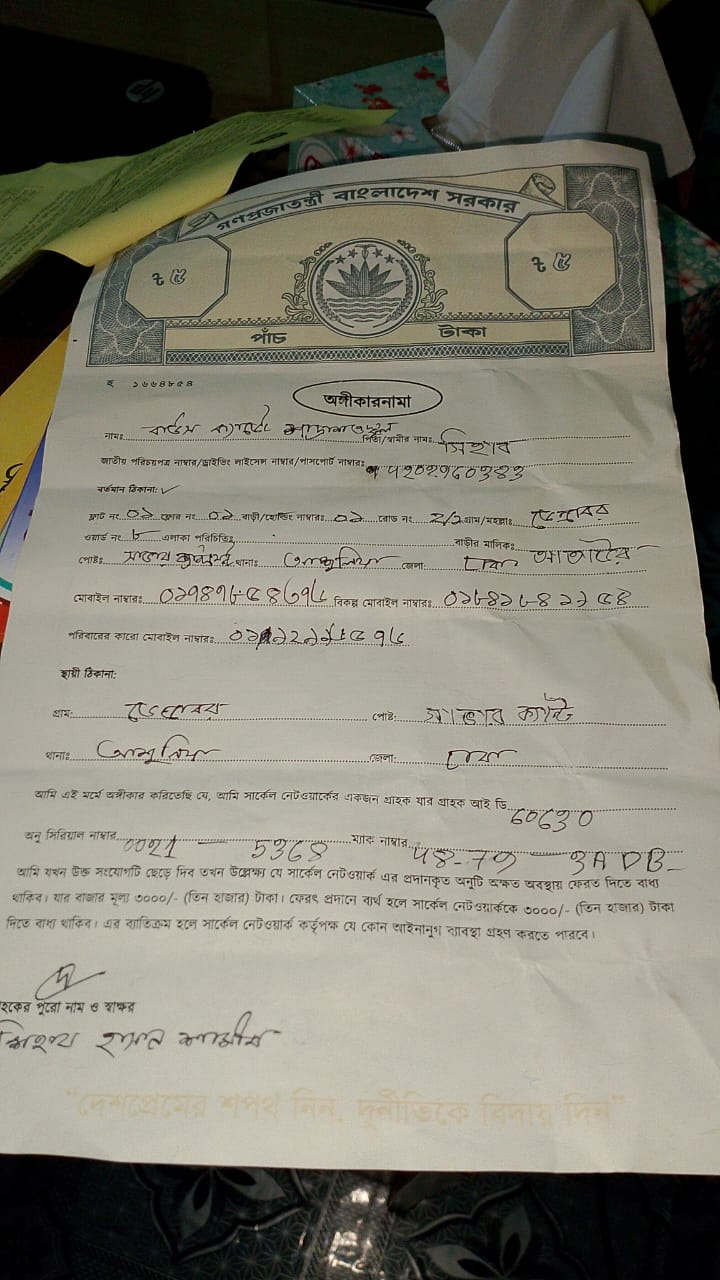 গণপ্রজাতন্ত্রী বাংলাদেশ সরকার
৳ ৫ ৳ ৫
পাঁচ টাকা
হ ১৬৬৪৮৫৪
অঙ্গীকারনামা
নামঃ পিতা/স্বামীর নামঃ সিহাব
জাতীয় পরিচয়পত্র নাম্বার/ড্রাইভিং লাইসেন্স নাম্বার/পাসপোর্ট নাম্বারঃ
বর্তমান ঠিকানা:
ফ্লাট নং ০১ ফ্লোর নং ০১ বাড়ী/হোল্ডিং নাম্বারঃ ০১ রোড নং ২/১ গ্রাম/মহল্লাঃ
ওয়ার্ড নং ৮ এলাকা পরিচিতিঃ বাড়ীর মালিকঃ
পোষ্টঃ থানাঃ আশুলিয়া জেলা: ঢাকা
মোবাইল নাম্বারঃ বিকল্প মোবাইল নাম্বারঃ ০১৮৪১৮৪১১৫৪
পরিবারের কারো মোবাইল নাম্বারঃ
স্থায়ী ঠিকানা:
গ্রাম: পোষ্ট: সাভার ক্যান্ট
থানাঃ আশুলিয়া জেলা: ঢাকা
আমি এই মর্মে অঙ্গীকার করিতেছি যে, আমি সার্কেল নেটওয়ার্কের একজন গ্রাহক যার গ্রাহক আই ডি ৬০৬৩০
অনু সিরিয়াল নাম্বার 0021 — 5368 ম্যাক নাম্বার 48-79 — 3A DB
আমি যখন উক্ত সংযোগটি ছেড়ে দিব তখন উল্লেক্ষ্য যে সার্কেল নেটওয়ার্ক এর প্রদানকৃত অনুটি অক্ষত অবস্থায় ফেরত দিতে বাধ্য
থাকিব। যার বাজার মূল্য ৩০০০/- (তিন হাজার) টাকা। ফেরৎ প্রদানে ব্যর্থ হলে সার্কেল নেটওয়ার্ককে ৩০০০/- (তিন হাজার) টাকা
দিতে বাধ্য থাকিব। এর ব্যতিক্রম হলে সার্কেল নেটওয়ার্ক কর্তৃপক্ষ যে কোন আইনানুগ ব্যবস্থা গ্রহণ করতে পারবে।
হকের পুরো নাম ও স্বাক্ষর
হাসান
“দেশপ্রেমের শপথ নিন, দুর্নীতিকে বিদায় দিন”